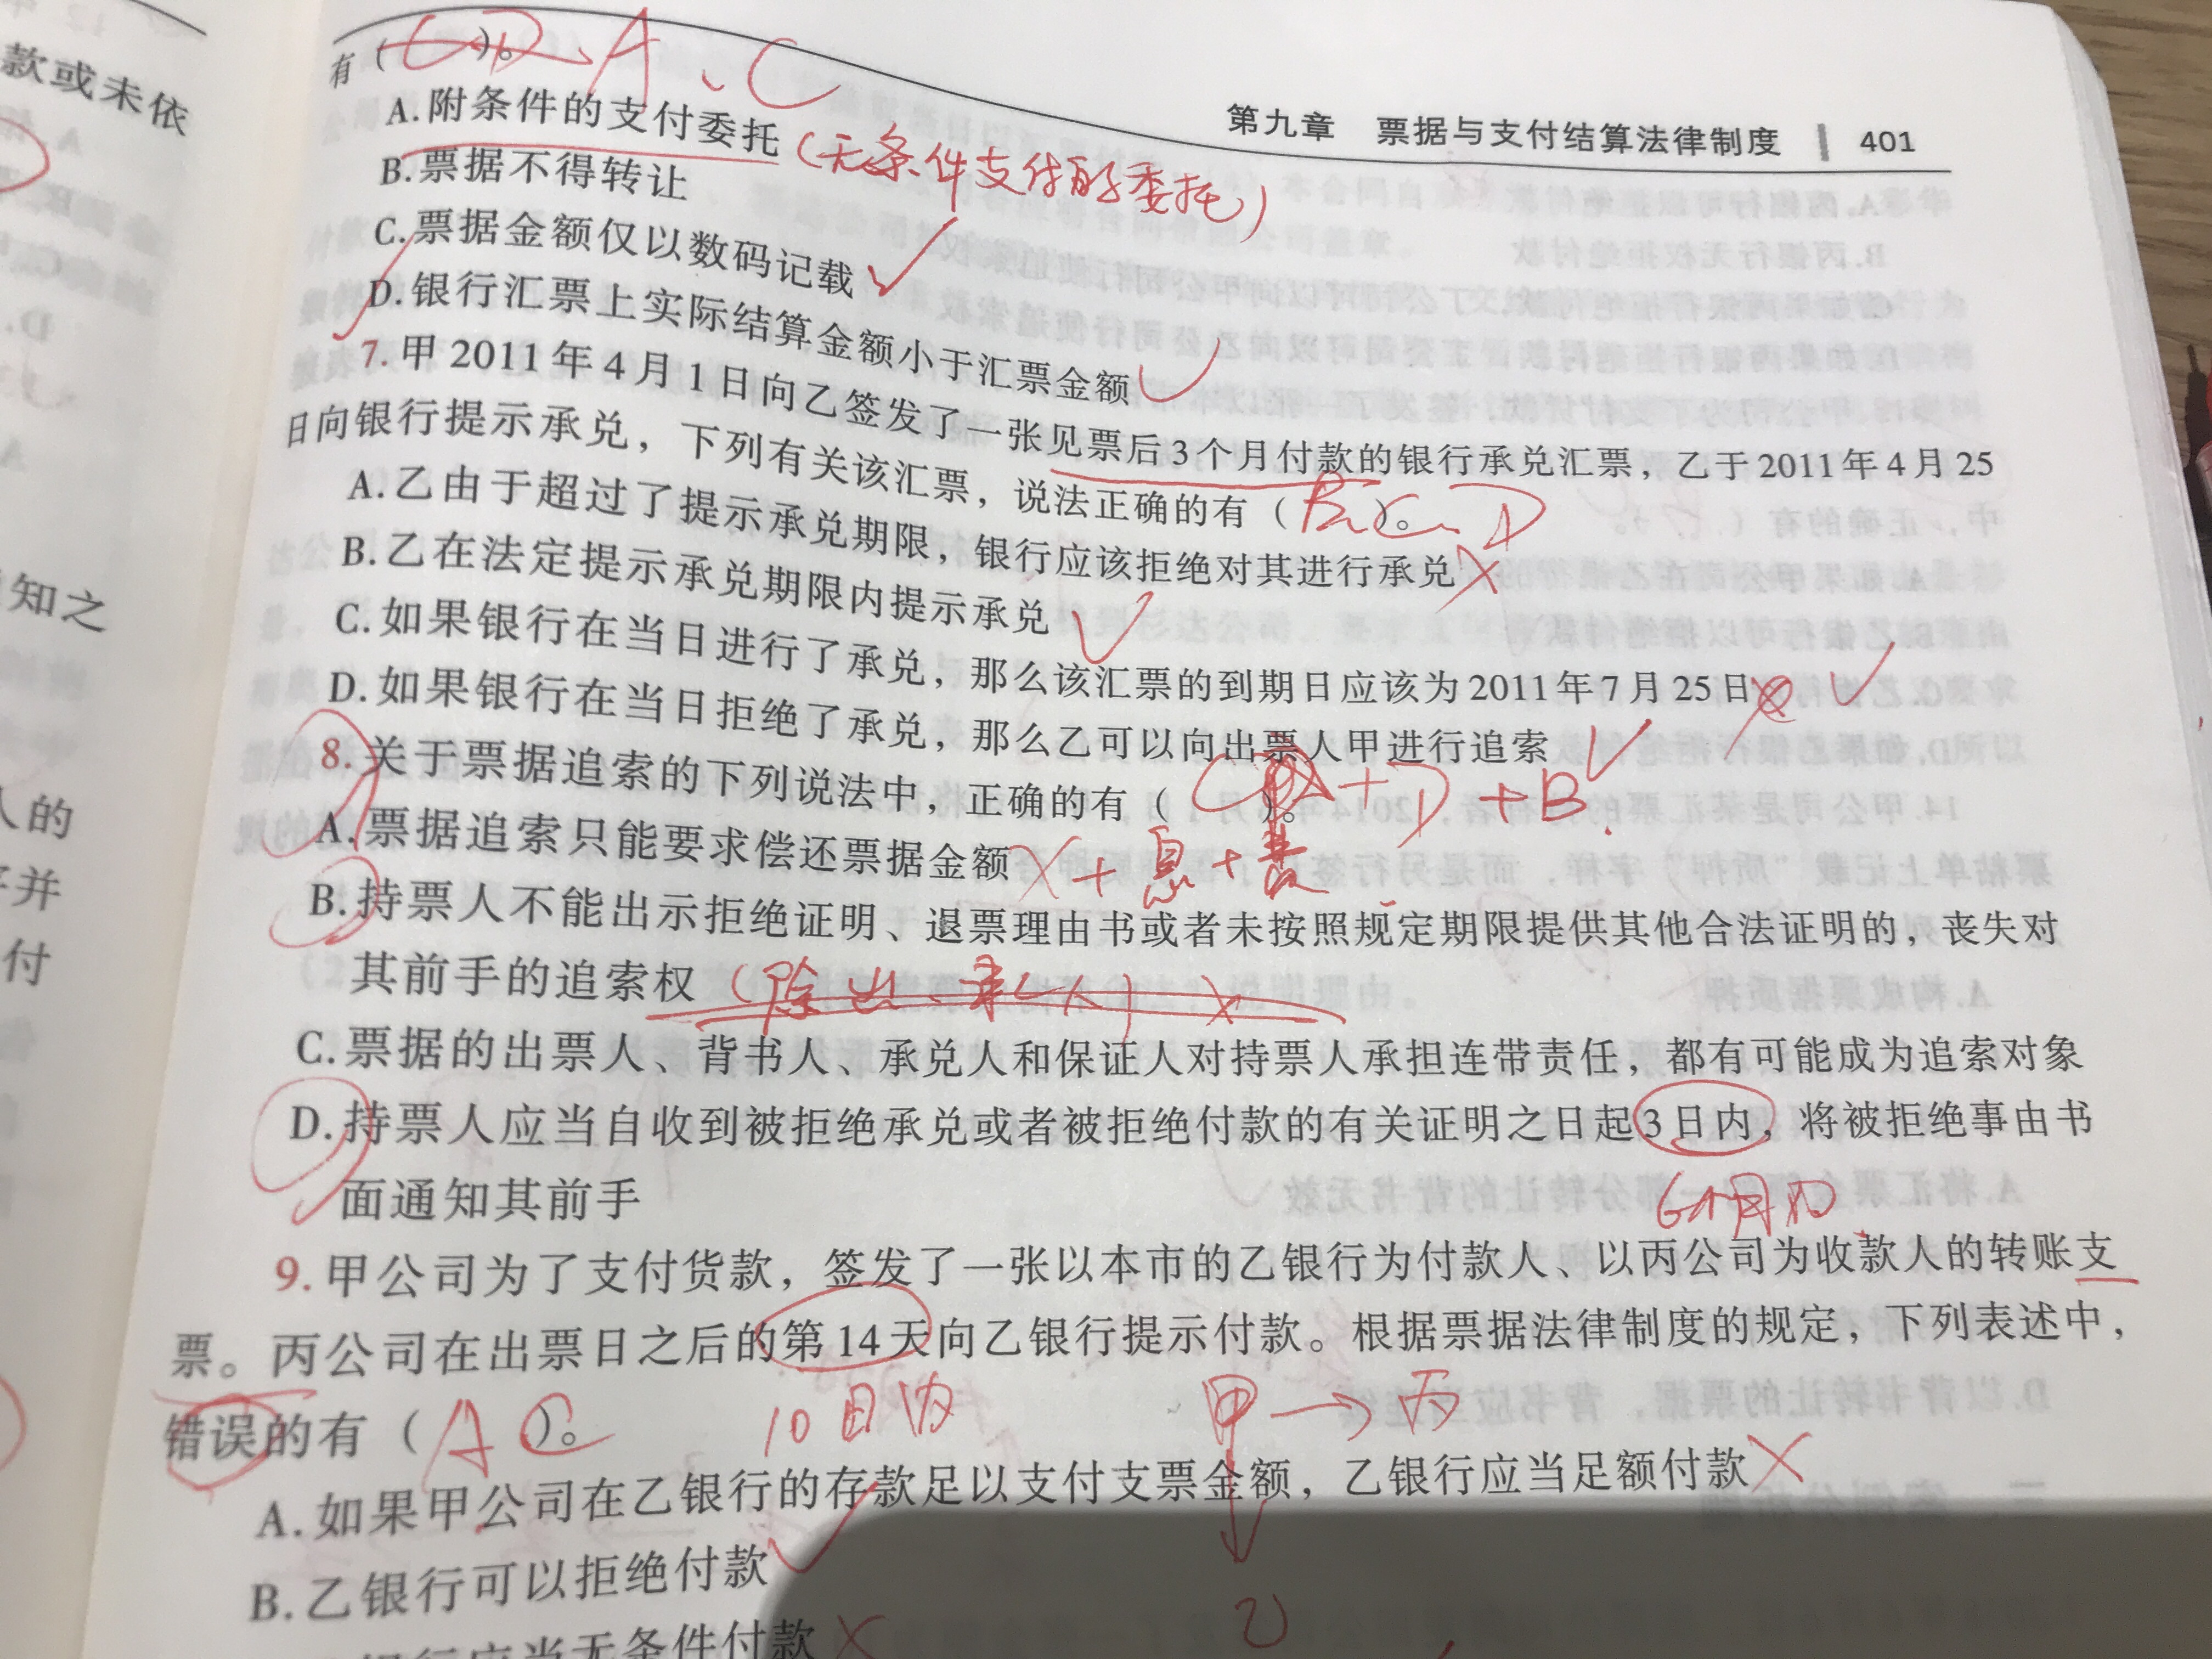 款或未依
知之
人的
并
付
第九章 票据与支付结算法律制度 401
有( )。 A、C
A.附条件的支付委托 (无条件支付的委托)
B.票据不得转让
C.票据金额仅以数码记载
D.银行汇票上实际结算金额小于汇票金额
7.甲2011年4月1日向乙签发了一张见票后3个月付款的银行承兑汇票,乙于2011年4月25
日向银行提示承兑,下列有关该汇票,说法正确的有( B、C、D )。
A.乙由于超过了提示承兑期限,银行应该拒绝对其进行承兑
B.乙在法定提示承兑期限内提示承兑
C.如果银行在当日进行了承兑,那么该汇票的到期日应该为2011年7月25日
D.如果银行在当日拒绝了承兑,那么乙可以向出票人甲进行追索
8.关于票据追索的下列说法中,正确的有( C )。 +D+B
A.票据追索只能要求偿还票据金额 +息+费
B.持票人不能出示拒绝证明、退票理由书或者未按照规定期限提供其他合法证明的,丧失对
其前手的追索权 (除出、承人)
C.票据的出票人、背书人、承兑人和保证人对持票人承担连带责任,都有可能成为追索对象
D.持票人应当自收到被拒绝承兑或者被拒绝付款的有关证明之日起3日内,将被拒绝事由书
面通知其前手
6个月内
9.甲公司为了支付货款,签发了一张以本市的乙银行为付款人、以丙公司为收款人的转账支
票。丙公司在出票日之后的第14天向乙银行提示付款。根据票据法律制度的规定,下列表述中,
错误的有( AC )。 10日内 甲→丙
A.如果甲公司在乙银行的存款足以支付支票金额,乙银行应当足额付款
B.乙银行可以拒绝付款
乙
银行应当无条件付款